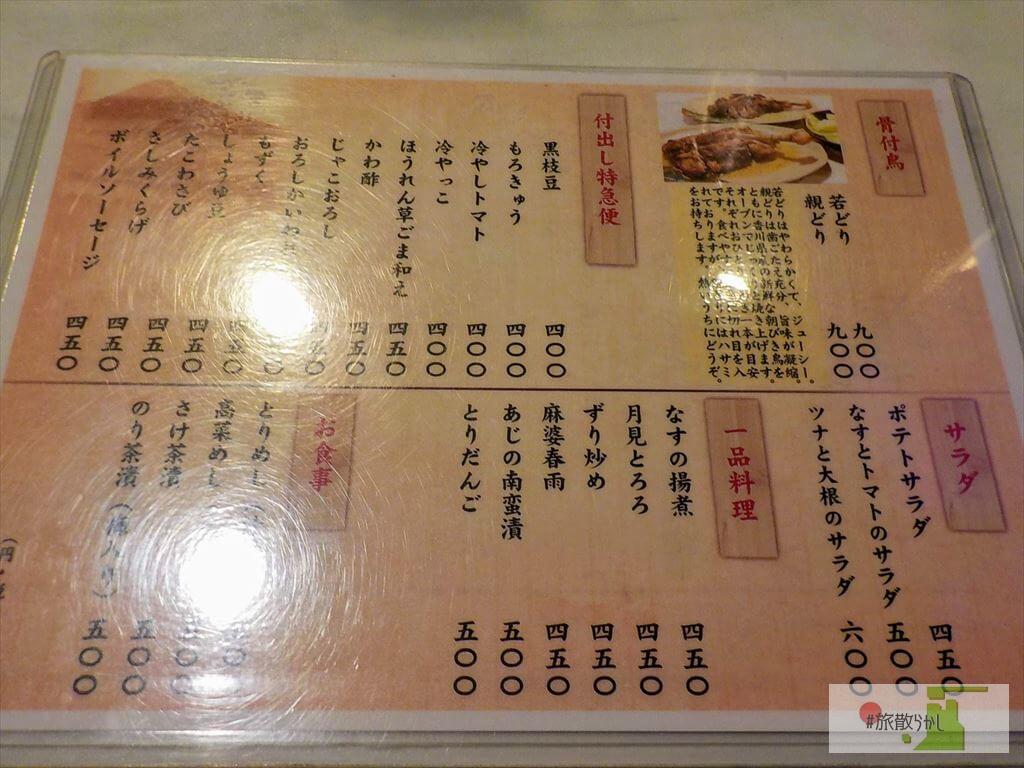 骨付鳥
若どり 九〇〇
親どり 九〇〇
若どりはやわらかくて、ジューシー。
親どりは歯ごたえ充分、旨味が凝縮。
ともに香川県産の新鮮な朝びき鳥を
オーブンでじっくりと焼き上げます。
それぞれおひとり 一本が目安
です。食べやす 切れ目を入
れておりますが、 にはハサミ
をお持ちします。熱いうちにどうぞ。
付出し特急便
黒枝豆 四〇〇
もろきゅう 四〇〇
冷やしトマト 四〇〇
冷やっこ 四〇〇
ほうれん草ごま和え 四五〇
かわ酢 四
じゃこおろし
おろしかいわ
もずく
しょうゆ豆 四五〇
たこわさび 四五〇
さしみくらげ 四五〇
ボイルソーセージ 四五〇
サラダ
ポテトサラダ 四五〇
なすとトマトのサラダ 五〇〇
ツナと大根のサラダ 六〇〇
一品料理
なすの揚煮 四五〇
月見とろろ 四五〇
ずり炒め 四五〇
麻婆春雨 四五〇
あじの南蛮漬 五〇〇
とりだんご 五〇〇
お食事
とりめし
高菜めし
さけ茶漬 五〇〇
のり茶漬 五〇〇
#旅散らかし